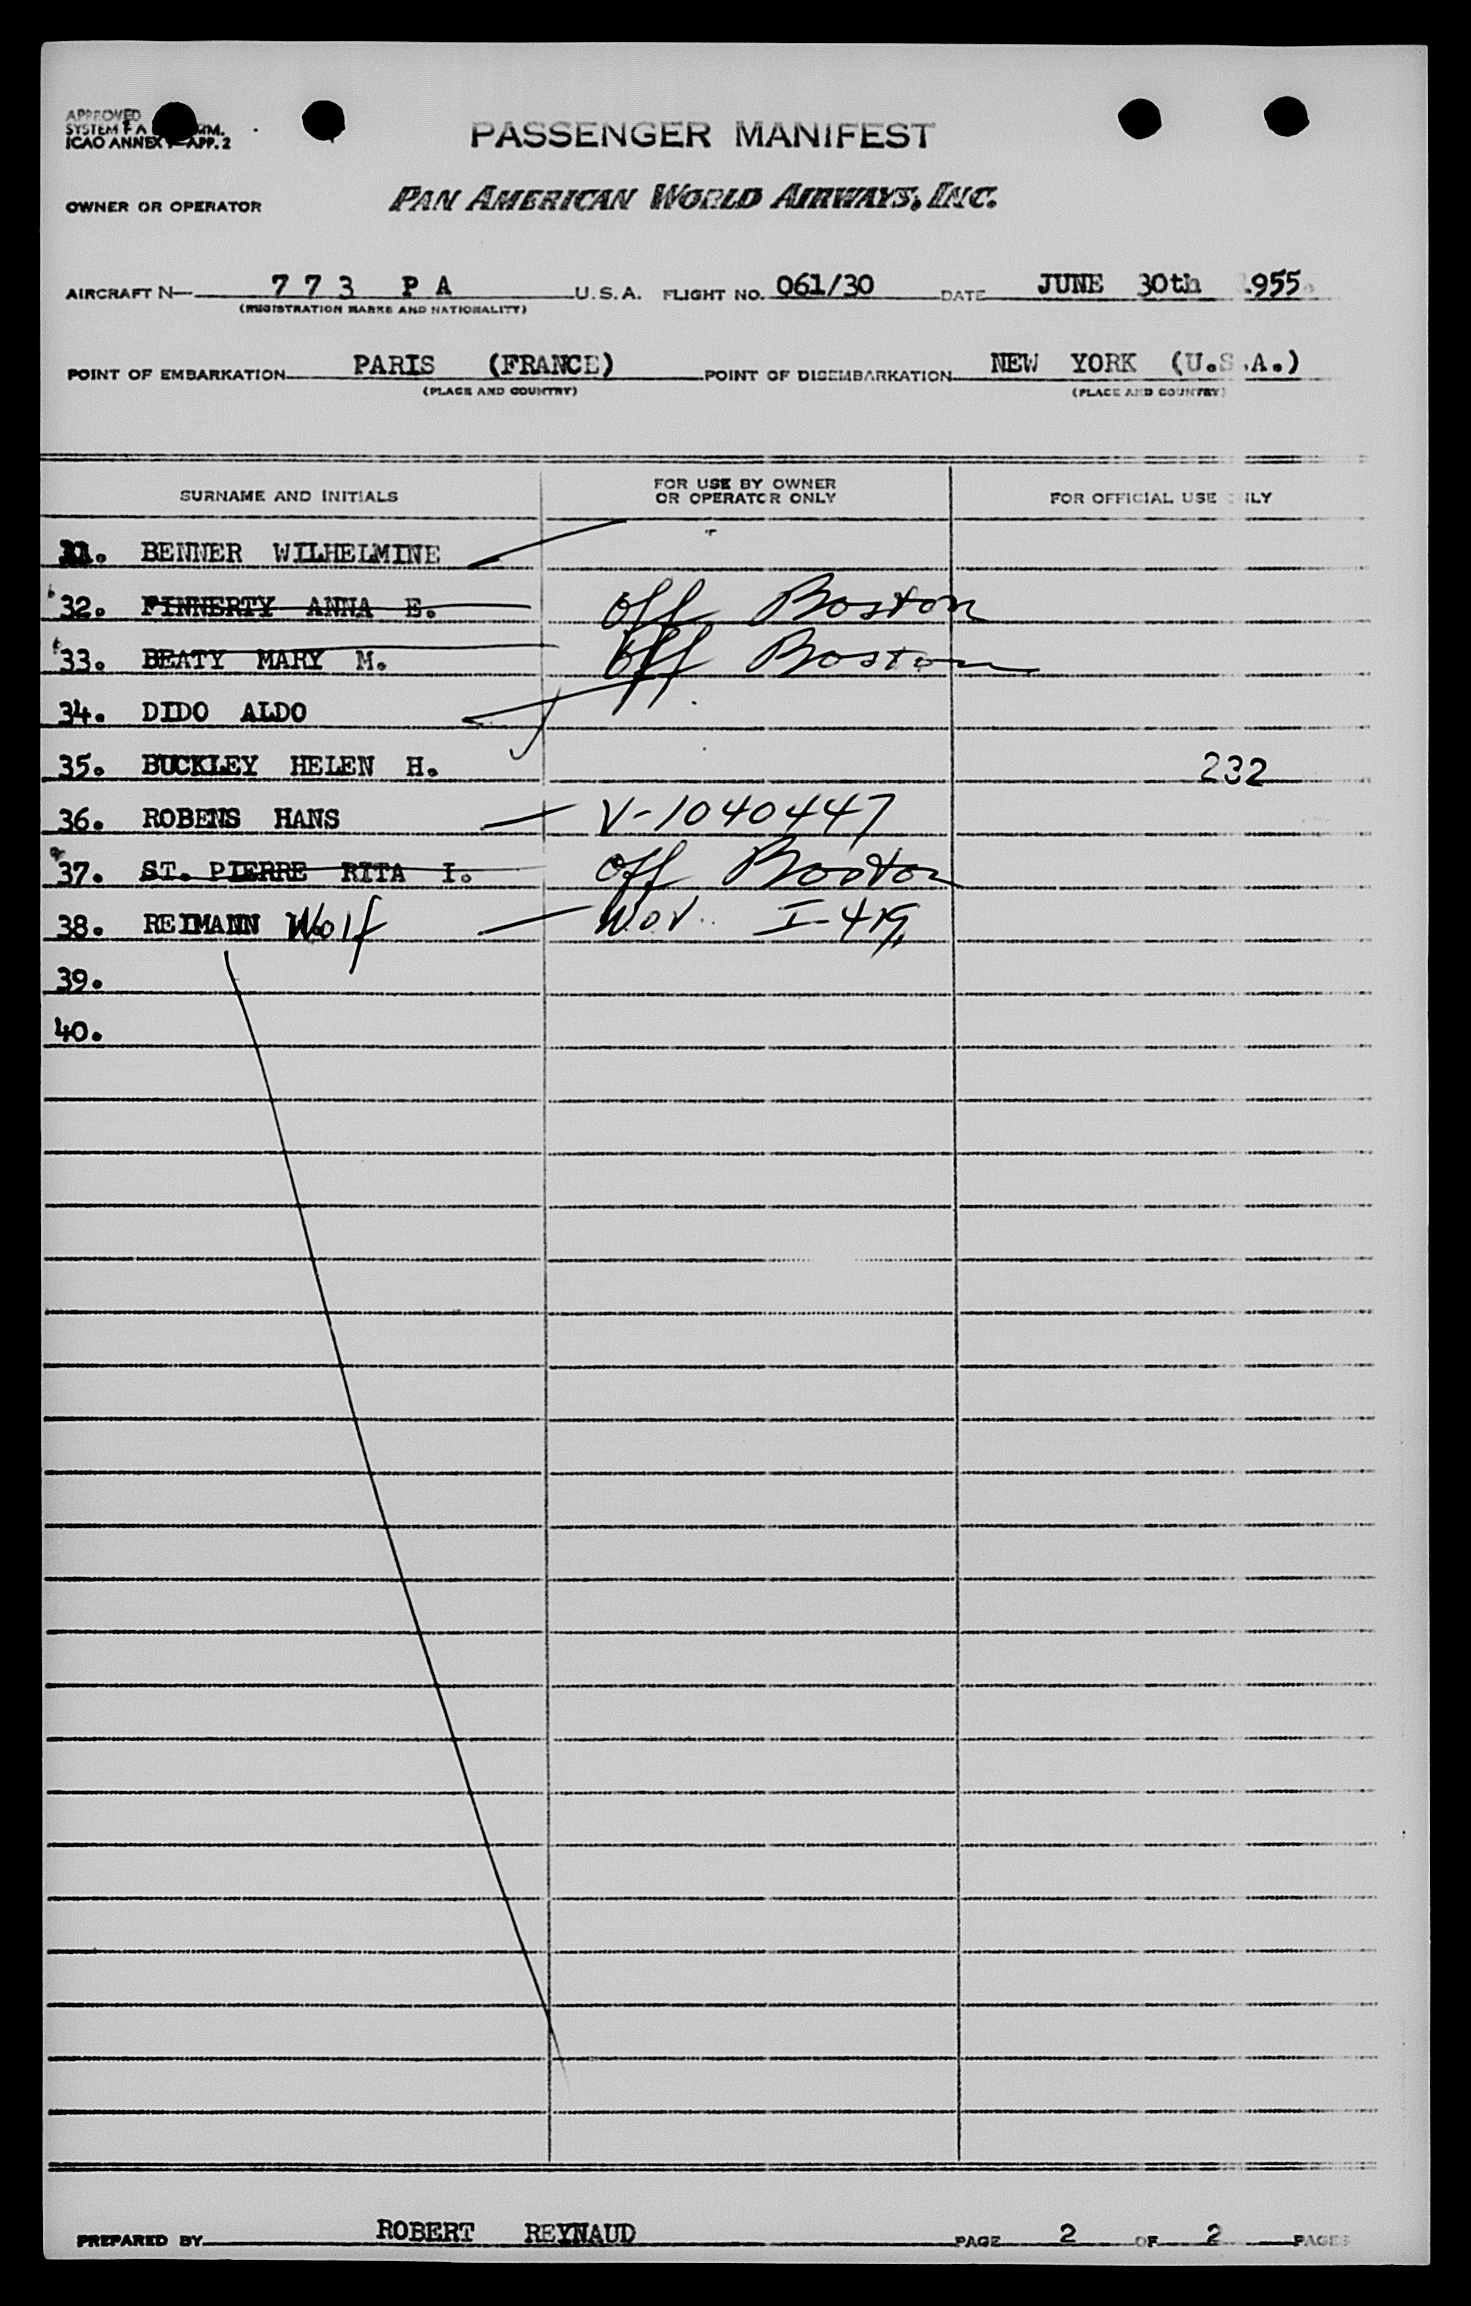 APPROVED
SYSTEM F A
ICAO ANNEX APP. 2
PASSENGER MANIFEST
OWNER OR OPERATOR PAN AMERICAN WORLD AIRWAYS, INC.
AIRCRAFT N— 7 7 3 P A U.S.A. FLIGHT NO. 061/30 DATE JUNE 30th 1955.
(REGISTRATION MARKS AND NATIONALITY)
POINT OF EMBARKATION PARIS (FRANCE) POINT OF DISEMBARKATION NEW YORK (U.S.A.)
(PLACE AND COUNTRY) (PLACE AND COUNTRY)
SURNAME AND INITIALS FOR USE BY OWNER OR OPERATOR ONLY FOR OFFICIAL USE ONLY
31. BENNER WILHELMINE
32. FINNERTY ANNA E. Off Boston
33. BEATY MARY M. Off Boston
34. DIDO ALDO
35. BUCKLEY HELEN H. 232
36. ROBENS HANS V-1040447
37. ST. PIERRE RITA I. Off Boston
38. REIMANN Wolf
39.
40.
PREPARED BY ROBERT REYNAUD PAGE 2 OF 2 PAGES